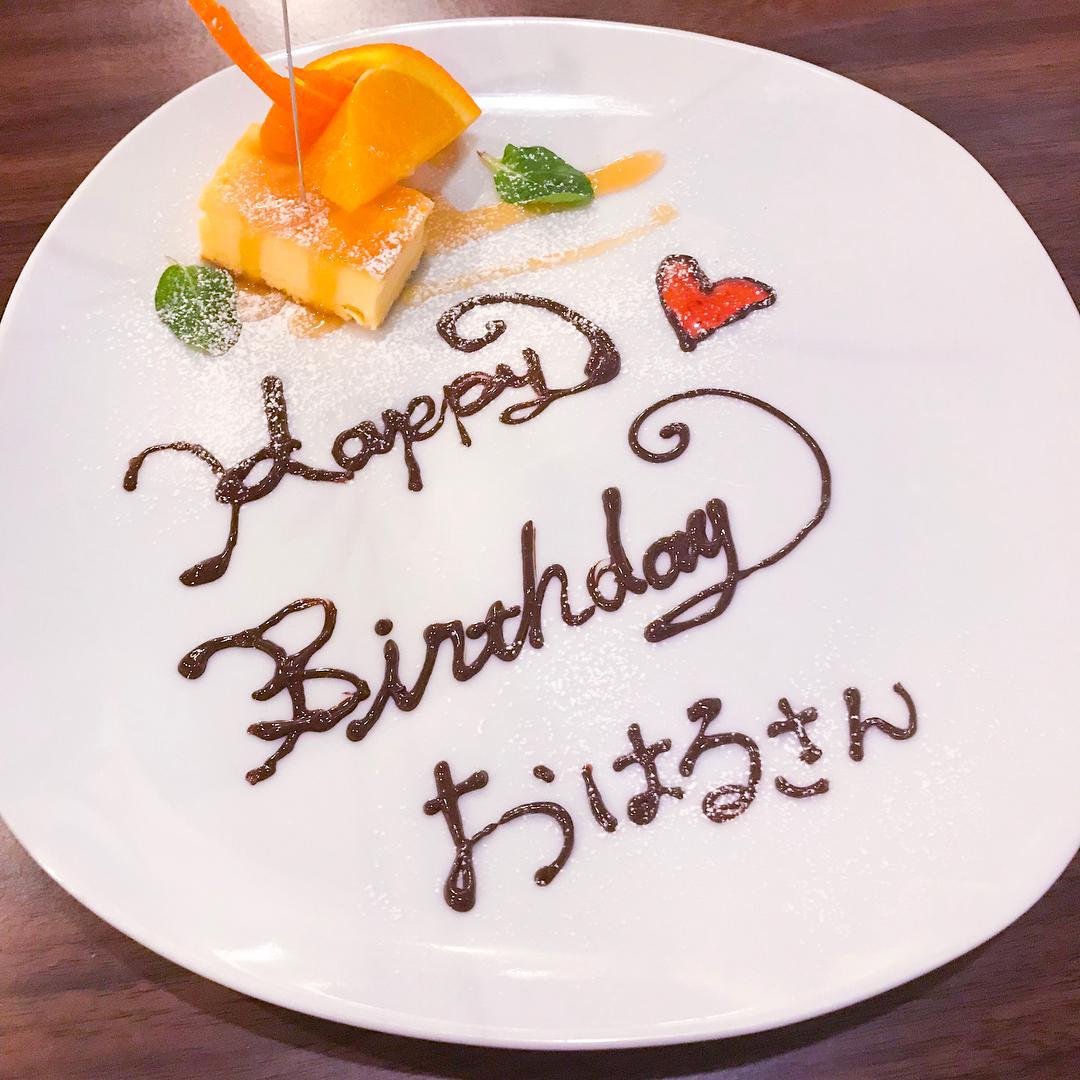 Happy
Birthday
おはるさん